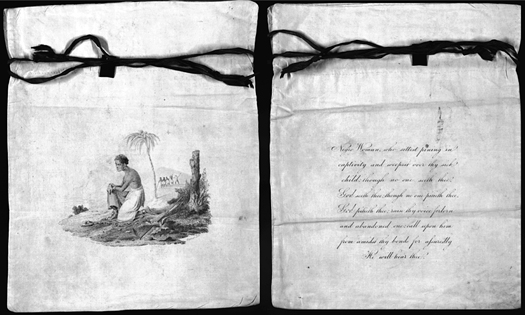 Negro Woman, who sittest pining in
captivity and weepest over thy sick
child; though no one seeth thee,
God seeth thee; though no one pitieth thee,
God pitieth thee; raise thy voice forlorn
and abandoned one; call upon him
from amidst thy bonds for assuredly
He will hear thee.